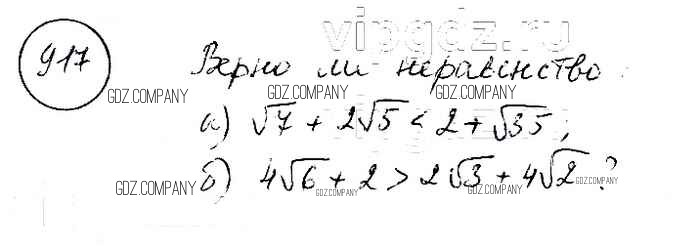 vipgdz.ru
917 Верно ли неравенство:
GDZ.COMPANY GDZ.COMPANY GDZ.COMPANY
а) √7 + 2√5 < 2 + √35;
GDZ.COMPANY GDZ.COMPANY GDZ.COMPANY
б) 4√6 + 2 > 2√3 + 4√2?
GDZ.COMPANY GDZ.COMPANY GDZ.COMPANY GDZ.COMPANY